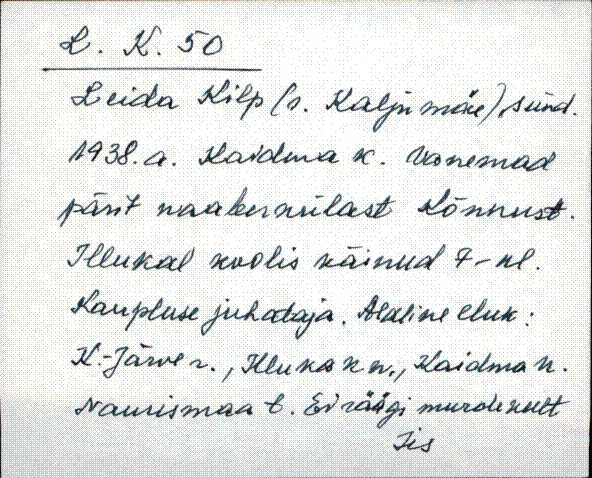 L. K. 50
Leida Kilp (s. Kaljumäe), sünd.
1938. a. Kaidma k. Vanemad
pärit naaberkülast Kõnnust.
Illukal koolis käinud 7-kl.
Kaupluse juhataja. Alaline eluk:
K.-Järve r., Illuka k.n., Kaidma k.
Naurismaa t. Ei räägi murdekeelt